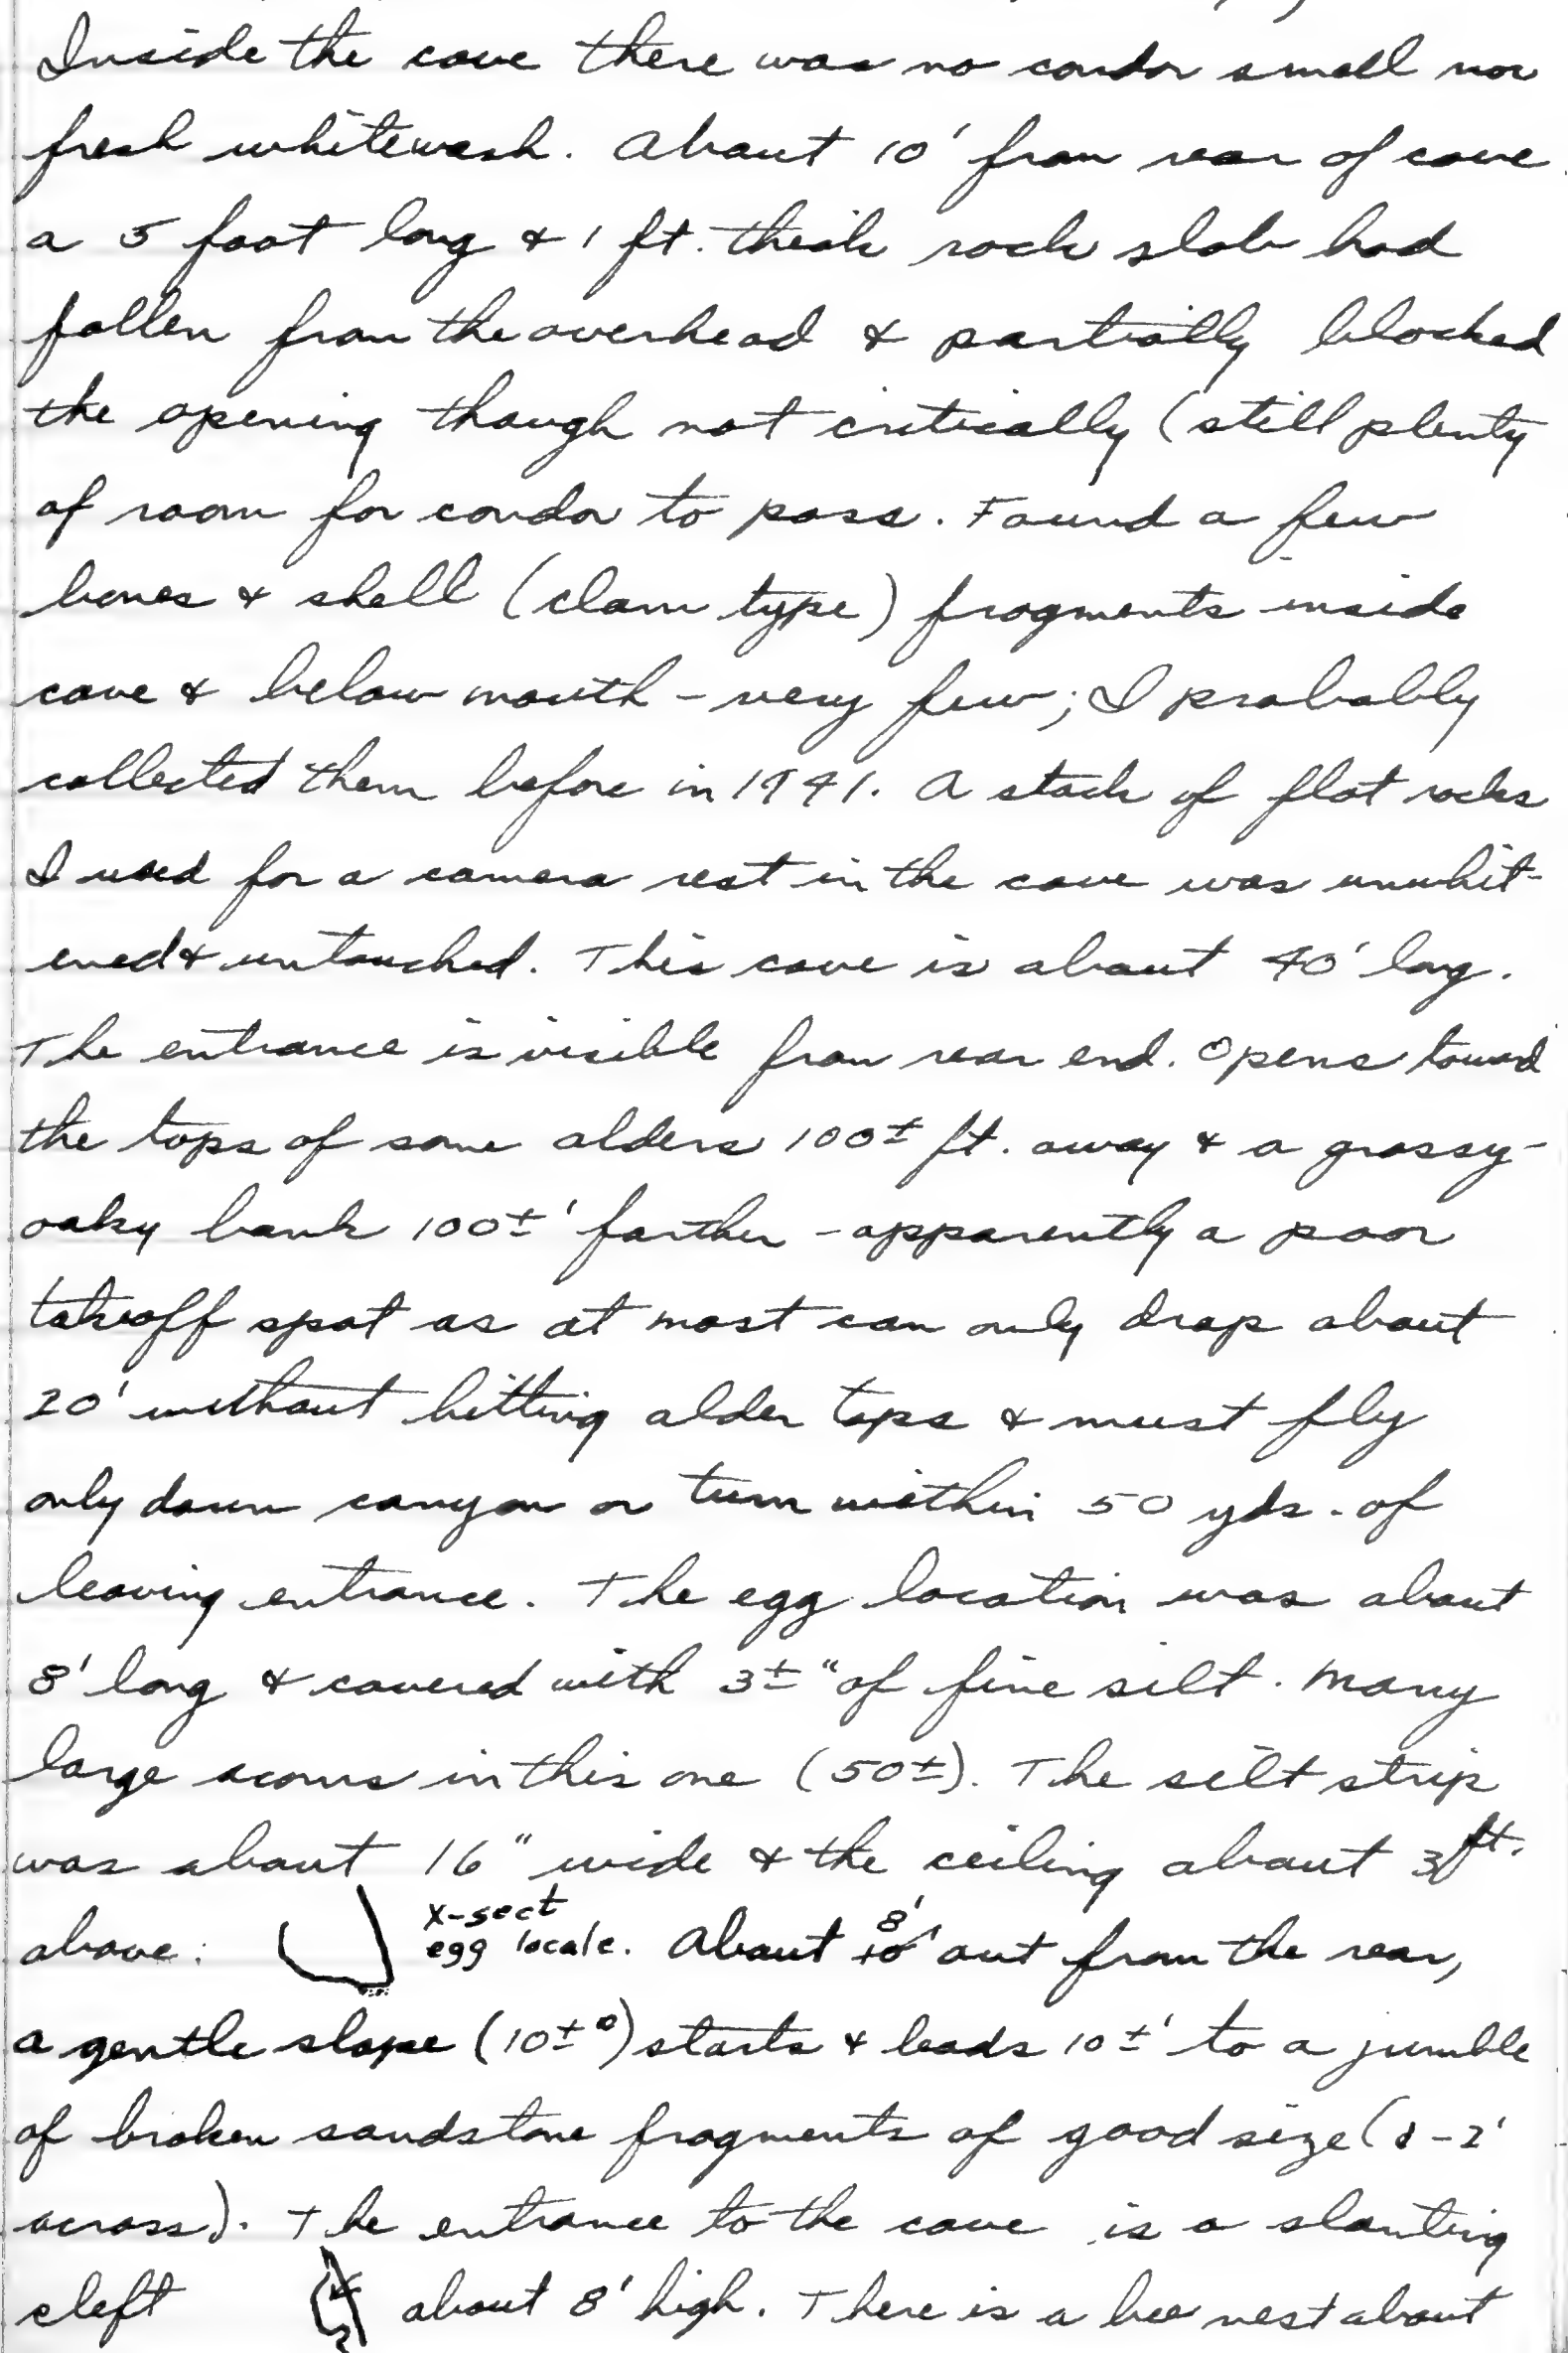 Inside the cave there was no condor smell nor
fresh whitewash. About 10' from rear of cave
a 5 foot long & 1 ft. thick rock slab had
fallen from the overhead & partially blocked
the opening though not critically (still plenty
of room for condor to pass. Found a few
bones & shell (clam type) fragments inside
cave & below mouth - very few; I probably
collected them before in 1941. A stack of flat rocks
I used for a camera rest in the cave was unwhit-
ened & untouched. This cave is about 40' long.
The entrance is visible from rear end. Opens toward
the tops of some alders 100± ft. away & a grassy-
oaky bank 100±' farther - apparently a poor
takeoff spot as at most can only drop about
20' without hitting alder tops & must fly
only down canyon or turn within 50 yds. of
leaving entrance. The egg location was about
8' long & covered with 3±" of fine silt. Many
large acorns in this one (50±). The silt strip
was about 16" wide & the ceiling about 3 ft.
above. X-sect egg locale. About 8' out from the rear,
a gentle slope (10±°) starts & leads 10±' to a jumble
of broken sandstone fragments of good size (1-2'
across). The entrance to the cave is a slanting
cleft about 8' high. There is a bee nest about